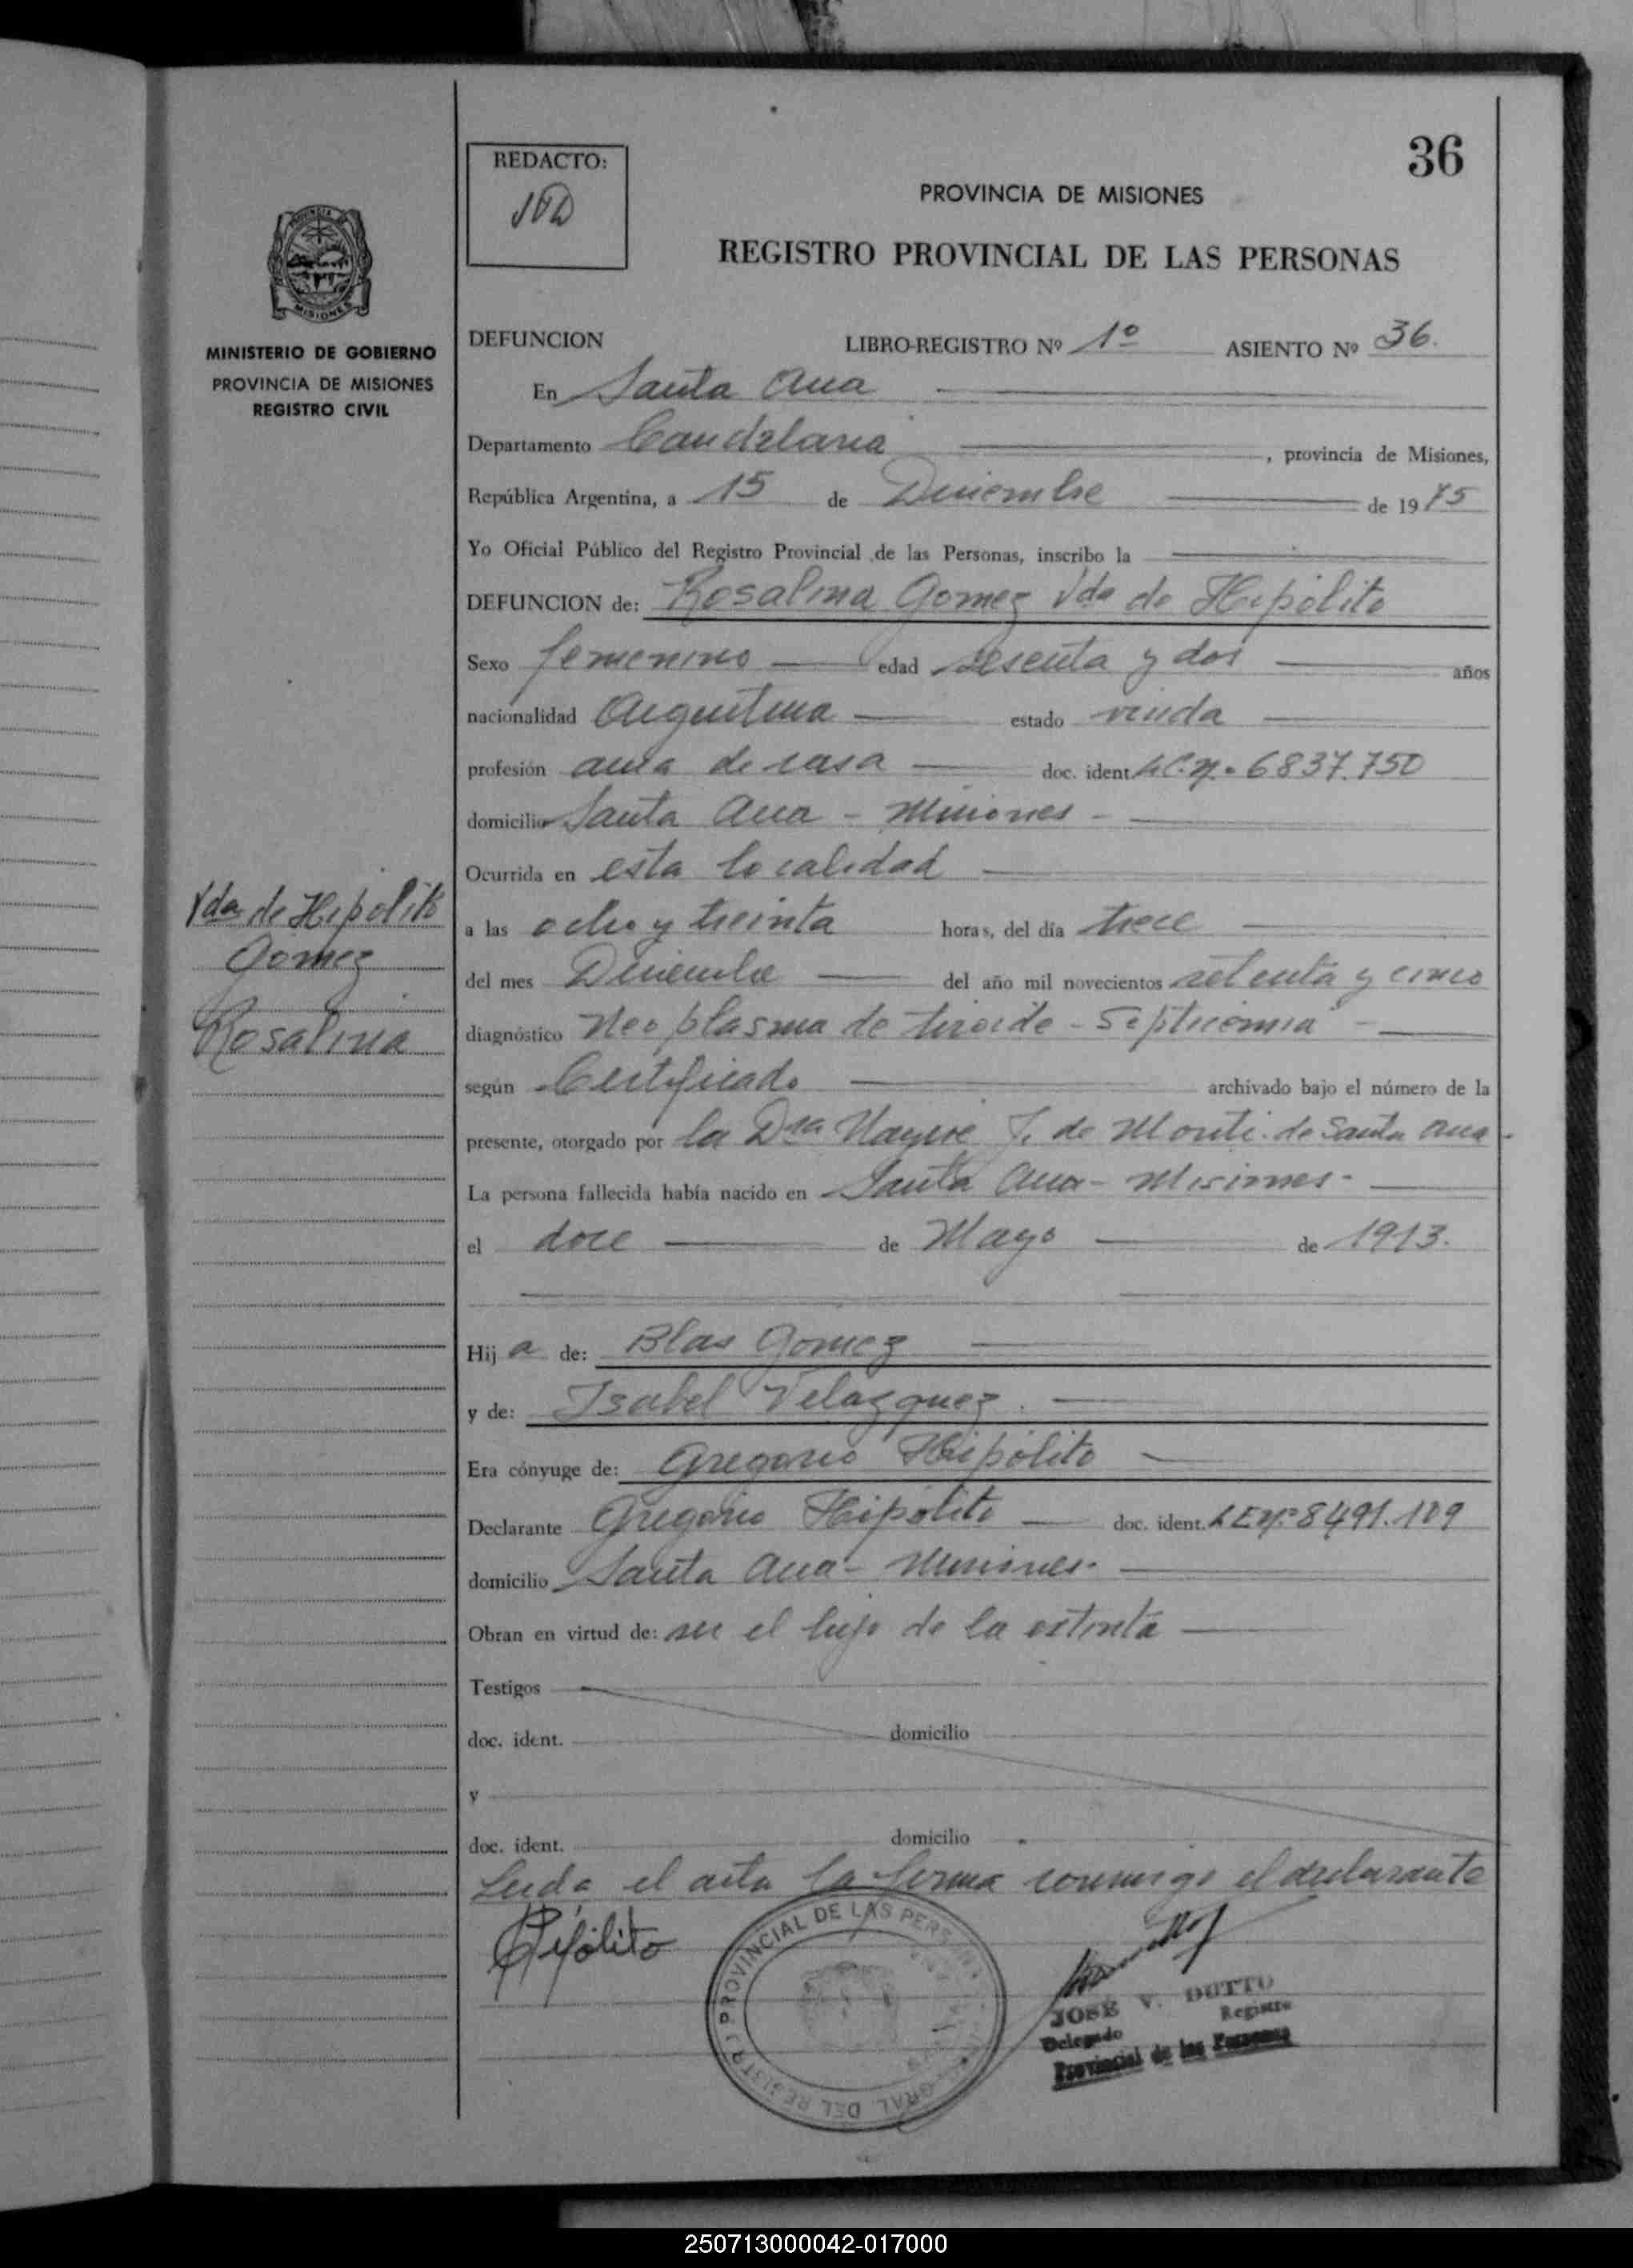 36
REDACTO:
PROVINCIA DE MISIONES
REGISTRO PROVINCIAL DE LAS PERSONAS
MISIONES
MINISTERIO DE GOBIERNO
PROVINCIA DE MISIONES
REGISTRO CIVIL
DEFUNCION LIBRO-REGISTRO Nº 1º ASIENTO Nº 36.
En Santa Ana
Departamento Candelaria, provincia de Misiones,
República Argentina, a 15 de Diciembre de 1975
Yo Oficial Público del Registro Provincial de las Personas, inscribo la
DEFUNCION de: Rosalina Gomez Vda de Hipólito
Sexo femenino edad sesenta y dos años
nacionalidad Argentina estado viuda
profesión ama de casa doc. ident. LC.nº 6837.750
domicilio Santa Ana - Misiones -
Ocurrida en esta localidad
a las ocho y treinta horas, del día trece
del mes Diciembre del año mil novecientos setenta y cinco
diagnóstico Neoplasma de tiroide - Septicemia -
según Certificado archivado bajo el número de la
presente, otorgado por la Dra J. de Monti. de Santa Ana -
La persona fallecida había nacido en Santa Ana - Misiones -
el doce de Mayo de 1913.
Vda de Hipolito
Gomez
Rosalina
Hija de: Blas Gomez
y de: Isabel Velazquez.
Era cónyuge de: Gregorio Hipólito
Declarante Gregorio Hipólito doc. ident. LEnº 8491.109
domicilio Santa Ana - Misiones -
Obran en virtud de: ser el hijo de la extinta
Testigos
doc. ident. domicilio
y
doc. ident. domicilio
Leida el acta la firma conmigo el declarante
Hipólito
PROVINCIAL DE LAS PERS
GRAL DEL REGISTR
JOSE V. DUTTO
Delegado Registro
Provincial de las Personas
250713000042-017000